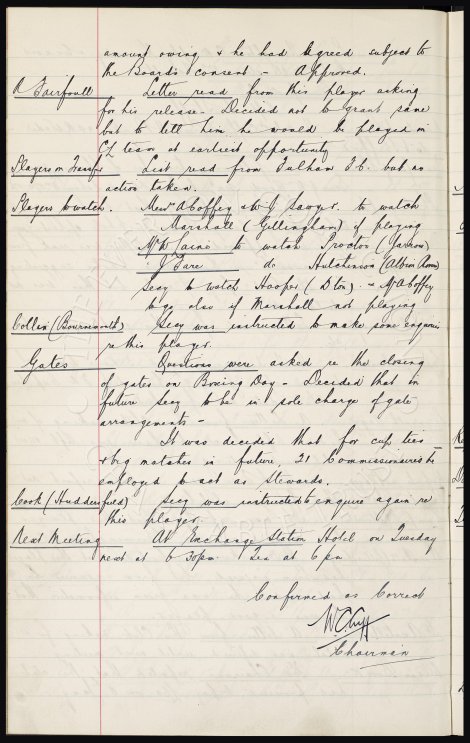 amount owing & he had agreed subject to
the Board's consent - Approved.
A Fairfoull Letter read from this player asking
for his release - Decided not to grant same
but to tell him he would be played in
CL team at earliest opportunity
Players on Transfer List read from Fulham F.C. but no
action taken.
Players to watch. Messrs A Coffey & W J Sawyer. to watch
Marshall (Gillingham) if playing
Mr to watch Procton (Jarrow)
do Hutchinson (Albion Rovers)
Secy to watch Hooper (Dton) - Mr A Coffey
to go also if Marshall not playing
(Bournemouth) Secy was instructed to make some enquiries
re this player.
Gates Questions were asked re the closing
of gates on Boxing Day - Decided that in
future Secy to be in sole charge of gate
arrangements -
It was decided that for cup ties
& big matches in future, 21 Commissionaires be
employed to act as Stewards.
Cook (Huddersfield) Secy was instructed to enquire again re
this player.
Next Meeting At Exchange Station Hotel on Tuesday
next at 6 30pm Tea at 6 pm
Confirmed as Correct
W C Cuff
Chairman